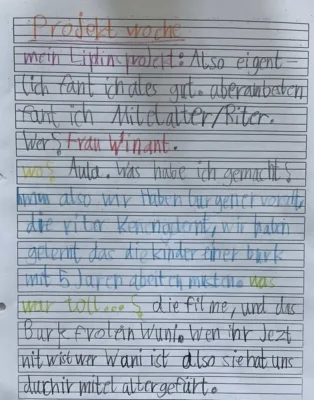 Projekt woche
mein Liplinsprojekt: Also eigent-
lich fant ich ales gut. aberambesten
fant ich Mitelalter/Riter.
Wer? Frau Winant.
wo? Aula. Was habe ich gemacht?
also wir haben burgener vorstelt,
die riter Kenengelernt, wir haben
gelernt das die kinder einer burk
mit 5 Jaren abeiten musten. was
war toll...? die filme, und das
Burk froilein Wuni. Wen ihr Jezt
nit wist wer Wani ist also sie hat uns
durchs mitel alter gefürt.